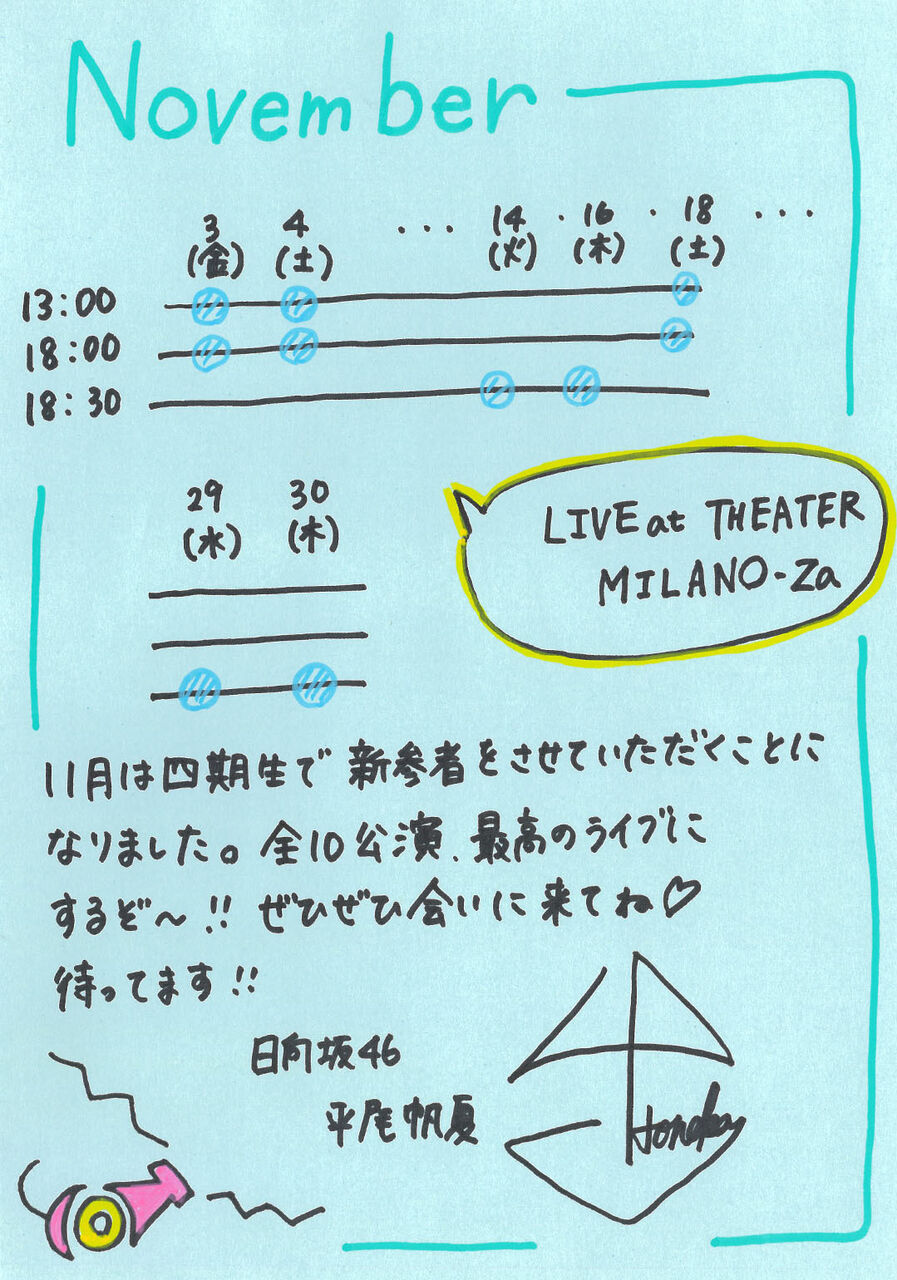 November
3 4 ... 14 · 16 · 18 ...
(金) (土) (火) (木) (土)
13:00
18:00
18:30
29 30
(水) (木)
LIVE at THEATER
MILANO-Za
11月は四期生で新参者をさせていただくことに
なりました。全10公演、最高のライブに
するぞ〜!! ぜひぜひ会いに来てね♡
待ってます!!
日向坂46
平尾帆夏
Honoka